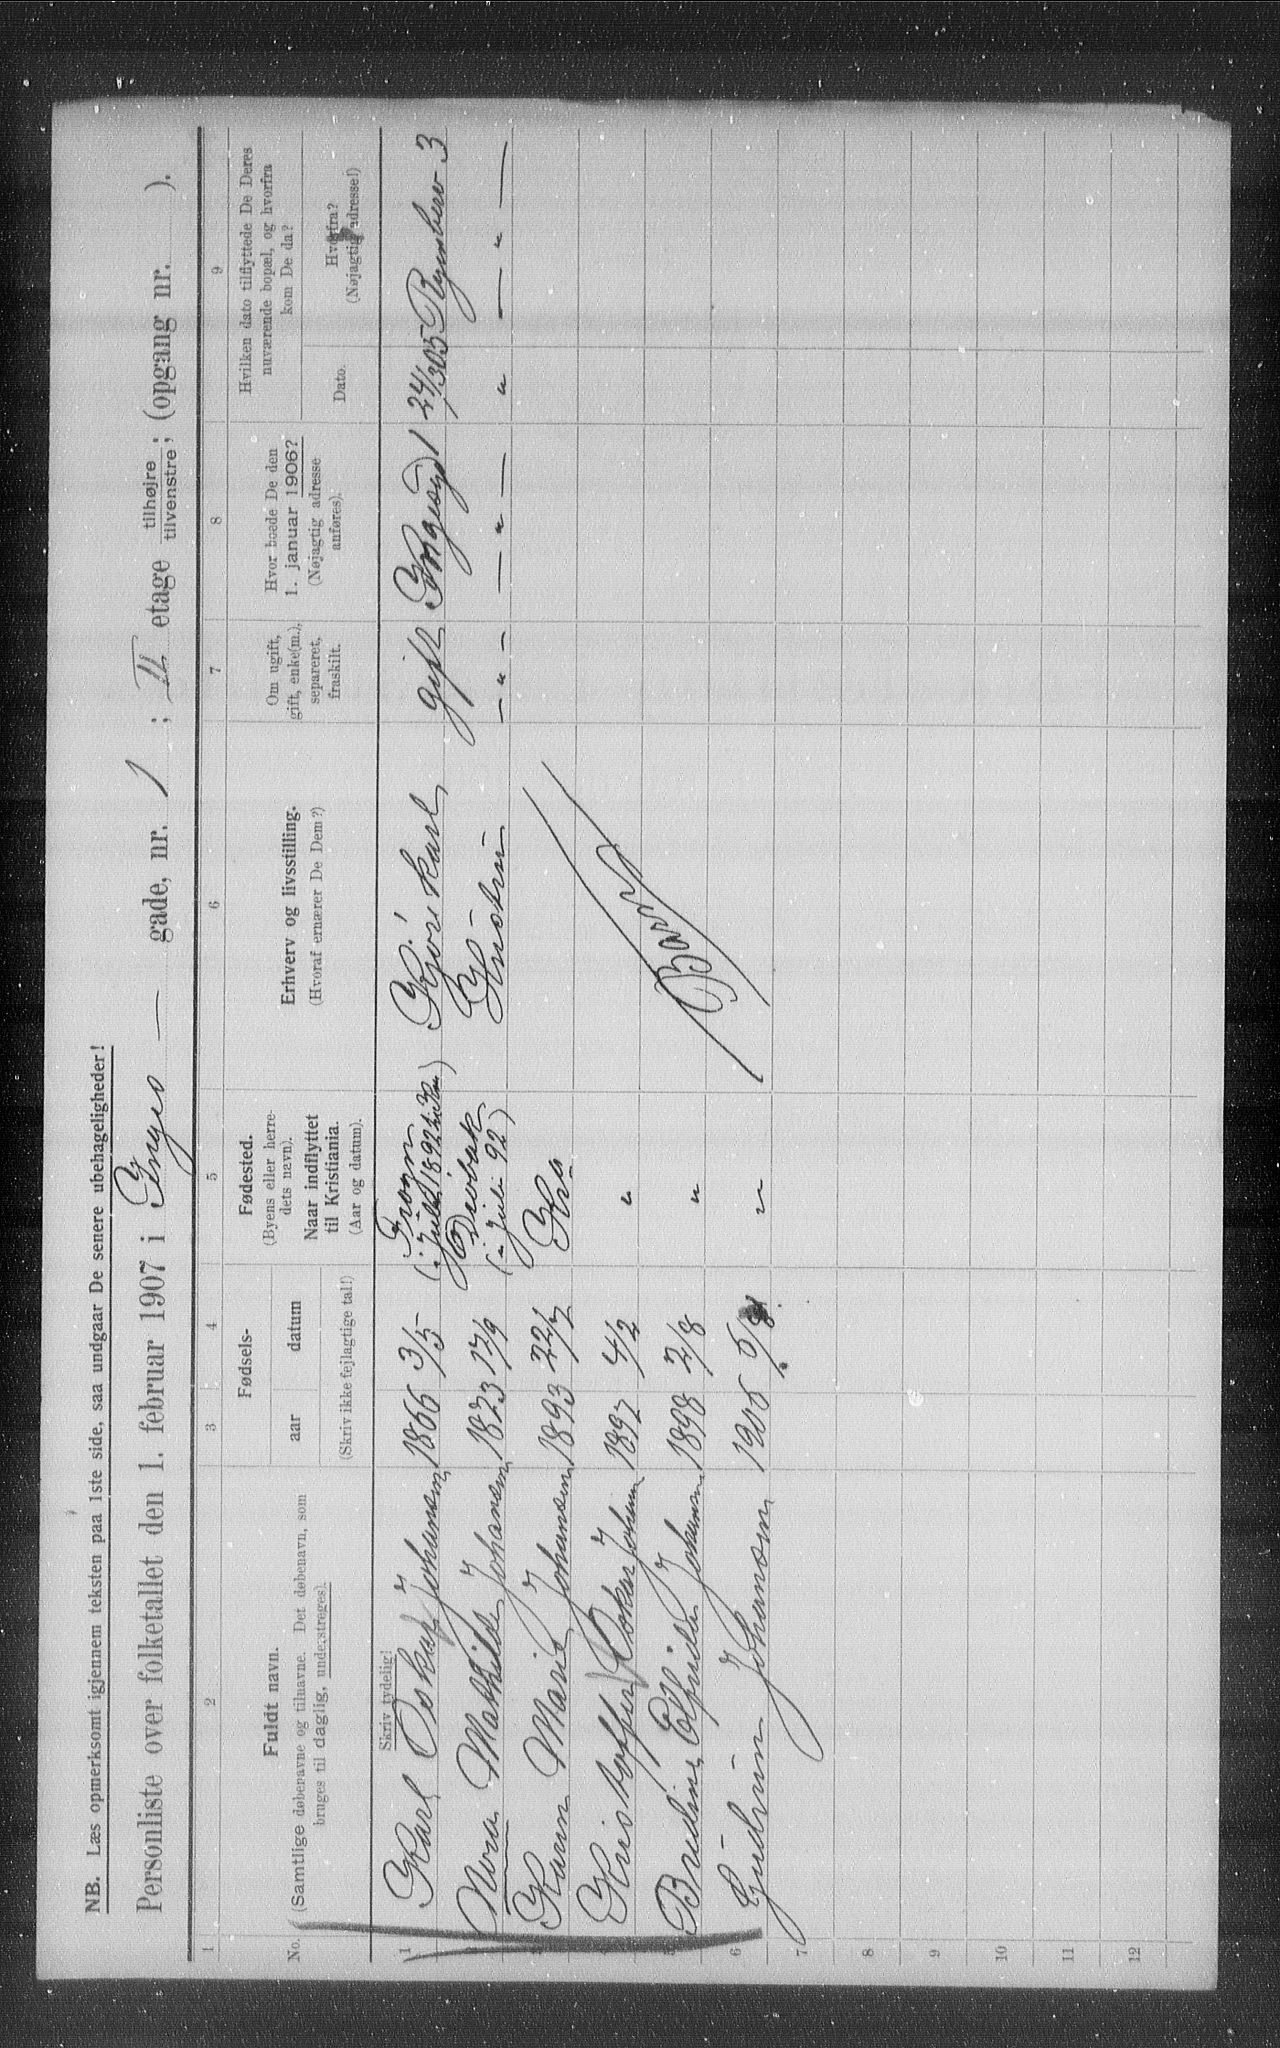 NB. Læs opmerksomt igjennem teksten paa 1ste side, saa undgaar De senere ubehageligheder!
Personliste over folketallet den 1. februar 1907 i Inges — gade, nr. 1 ; II etage tilhøjre tilvenstre; (opgang nr. ).
1 2 3 4 5 6 7 8 9
No.
Fuldt navn.
(Samtlige døbenavne og tilnavne. Det døbenavn, som
bruges til daglig, understreges).
Fødsels-
aar datum
(Skriv ikke fejlagtige tal!)
Fødested.
(Byens eller herre-
dets navn).
Naar indflyttet
til Kristiania.
(Aar og datum).
Erhverv og livsstilling.
(Hvoraf ernærer De Dem?)
Om ugift,
gift, enke(m.),
separeret,
fraskilt.
Hvor boede De den
1. januar 1906?
(Nøjagtig adresse
anføres).
Hvilken dato tilflyttede De Deres
nuværende bopæl, og hvorfra
kom De da?
Dato.
Hvorfra?
(Nøjagtig adresse!)
Skriv tydelig!
1 Karl Oskar Johansen 1866 3/5 Frogn Kjørekarl gift Ingesgd 1 24/3 05 3
2 Nora Mathilde Johansen 1873 17/9 Drøbak (i Juli 92) Hustru — " — — " — " — " —
3 Karen Marie Johansen 1893 22/7 Kra
4 Kristoffer Oskar Johansen 1897 4/2 "
Barn
5 Elfrida Johansen 1898 2/8 "
6 Gudrun Johansen "
7
8
9
10
11
12